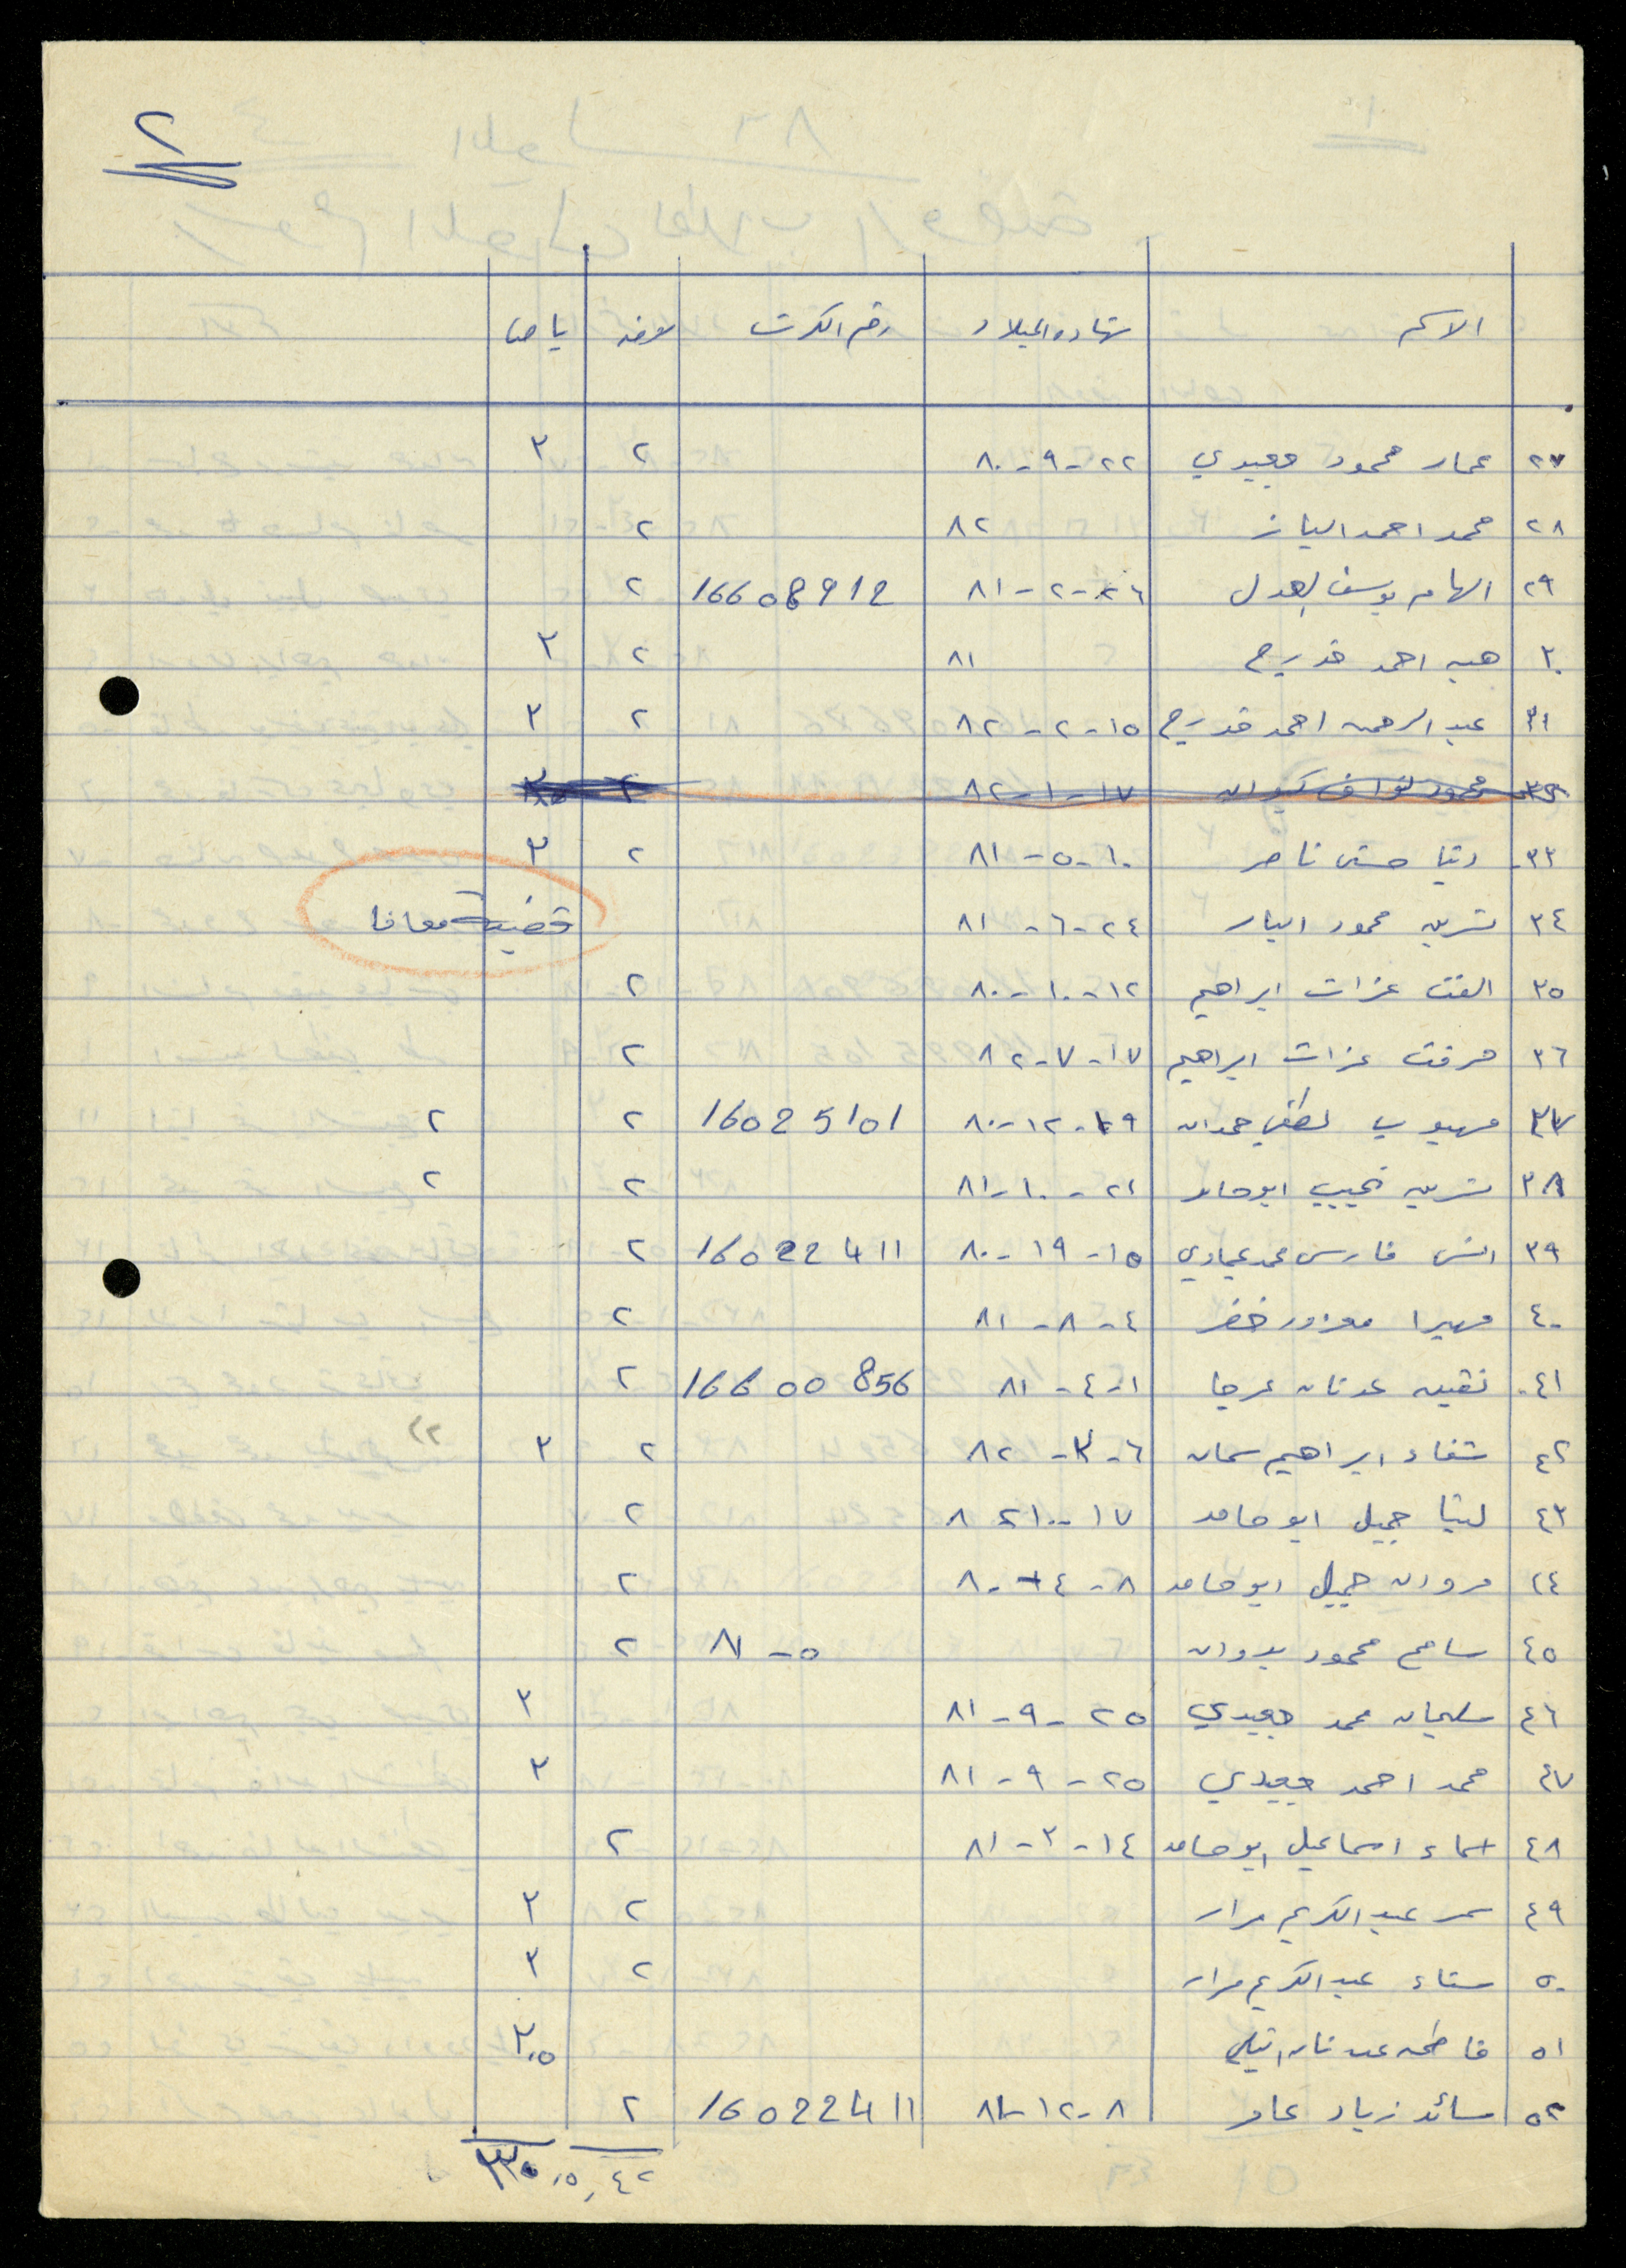 ٢
الاسم شهاده الميلاد رقم الكرت
٢٧ عمار محمود جعيدي ٢٢-٩-٨٠ ٢ ٣
٢٨ محمد احمد الباز ٨٢ ٢
٢٩ الهام يوسف العدل ٢٦-٢-٨١ 16608912 ٢
٣٠ هبه احمد قدريح ٨١ ٢ ٣
٣١ عبد الرحمن احمد قدريح ١٥-٢-٨٢ ٢ ٣
٣٢ محمود ١٧-١-٨٢ ٢
٣٣ دنيا حسن ناصر ١٠-٥-٨١ ٢ ٣
٣٤ نسرين محمود البار ٢٤-٦-٨١ قضية معافا
٣٥ الفت عزات ابراهيم ١٢-١٠-٨٠ ٢
٣٦ مرفت عزات ابراهيم ١٧-٧-٨٢ ٢
٣٧ مهيوب لطفي حمدان ١٩-١٢-٨٠ 16025101 ٢ ٢
٣٨ نسرين نجيب ابو حامد ٢١-١٠-٨١ ٢ ٢
٣٩ انس فارس محمد عيادي ١٥-١٩-٨٠ 16022411 ٢
٤٠ ميرا خضر ٤-٨-٨١ ٢
٤١ عدنان عرجا ١-٤-٨١ 16600856 ٢
٤٢ شفاء ابراهيم سمان ٦- -٨٢ ٢ ٣ ٢٢
٤٣ لينا جميل ابو حامد ١٧-١٠-٨٢ ٢
٤٤ مروان جميل ابو حامد ٨-٤-٨٠ ٢
٤٥ سامح محمود بدوان ٥-٨١ ٢
٤٦ سليمان محمد جعيدي ٢٥-٩-٨١ ٣
٤٧ محمد احمد جعيدي ٢٥-٩-٨١ ٣
٤٨ اسماء اسماعيل ابو حامد ١٤-٣-٨١ ٢
٤٩ سمر عبد الكريم مرار ٢ ٣
٥٠ سناء عبد الكريم مرار ٢ ٣
٥١ فاطمه عدنان ٣,٥
٥٢ سائد زياد عامر ٨-١٢-٨١ 16022411 ٢
٤٢